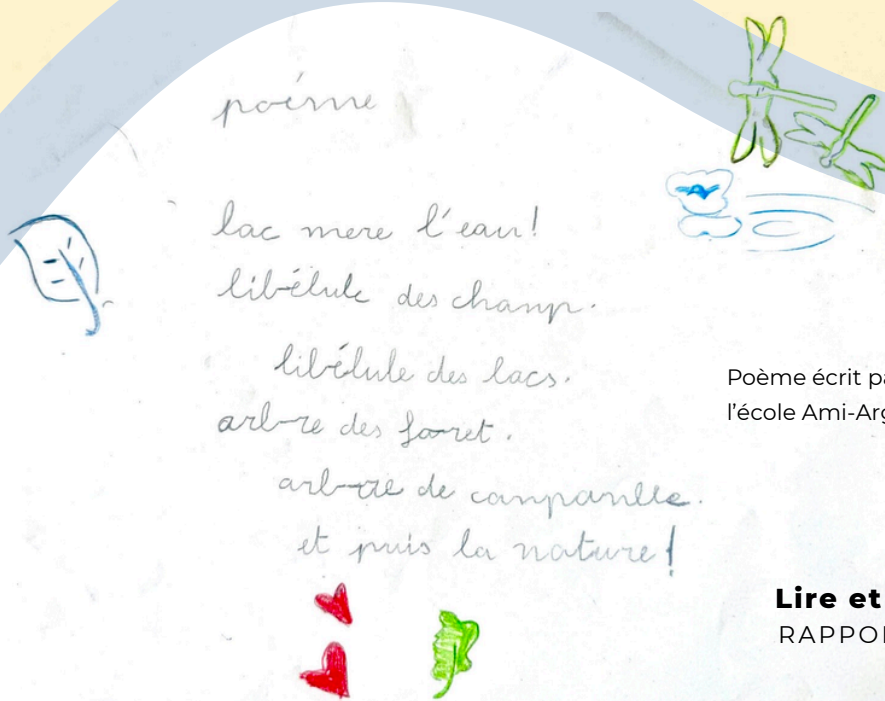 poéme
lac mere l'eau!
libélule des champ.
libélule des lacs.
arbre des foret.
arbre de
et puis la nature!
Poème écrit pa
l'école Ami-Arg
Lire et
RAPPO